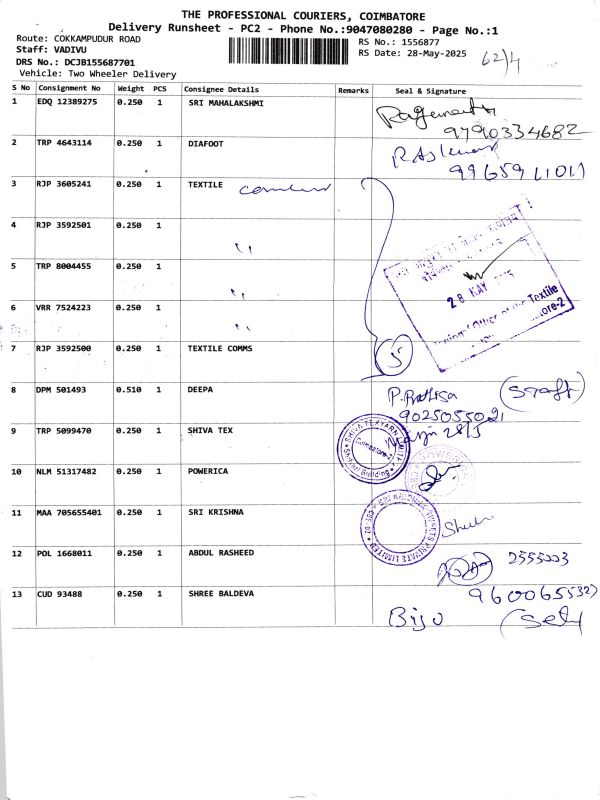 THE PROFESSIONAL COURIERS, COIMBATORE
Delivery Runsheet - PC2 - Phone No.:9047080280 - Page No.:1
Route: COKKAMPUDUR ROAD
RS No.: 1556877
Staff: VADIVU
RS Date: 28-May-2025
62/4
DRS No.: DCJB155687701
Vehicle: Two Wheeler Delivery
S No Consignment No Weight PCS Consignee Details Remarks Seal & Signature
1 EDQ 12389275 0.250 1 SRI MAHALAKSHMI
9790334682
2 TRP 4643114 0.250 1 DIAFOOT
3 RJP 3605241 0.250 1 TEXTILE
4 RJP 3592501 0.250 1 "
5 TRP 8004455 0.250 1 "
28 MAY
of the Textile
6 VRR 7524223 0.250 1 "
ore-2
7 RJP 3592500 0.250 1 TEXTILE COMMS
5
8 DPM 501493 0.510 1 DEEPA
(Staff)
9025055021
9 TRP 5099470 0.250 1 SHIVA TEX
28/5
SHIVA TEXYARN LIMITED
Coimbatore-2
10 NLM 51317482 0.250 1 POWERICA
11 MAA 705655401 0.250 1 SRI KRISHNA
SWEETS PRIVATE LIMITED
12 POL 1668011 0.250 1 ABDUL RASHEED
2555003
13 CUD 93488 0.250 1 SHREE BALDEVA
Biju